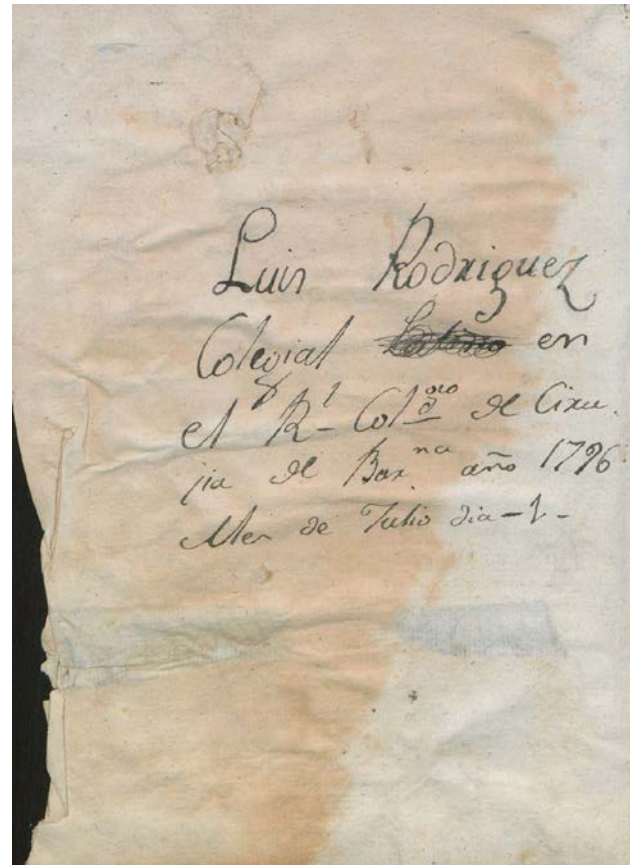 Luis Rodriguez
Colegial en
el R.l Col.gio de Ciru
jia de Bar.na año 1796
Mes de Julio dia - 1 -